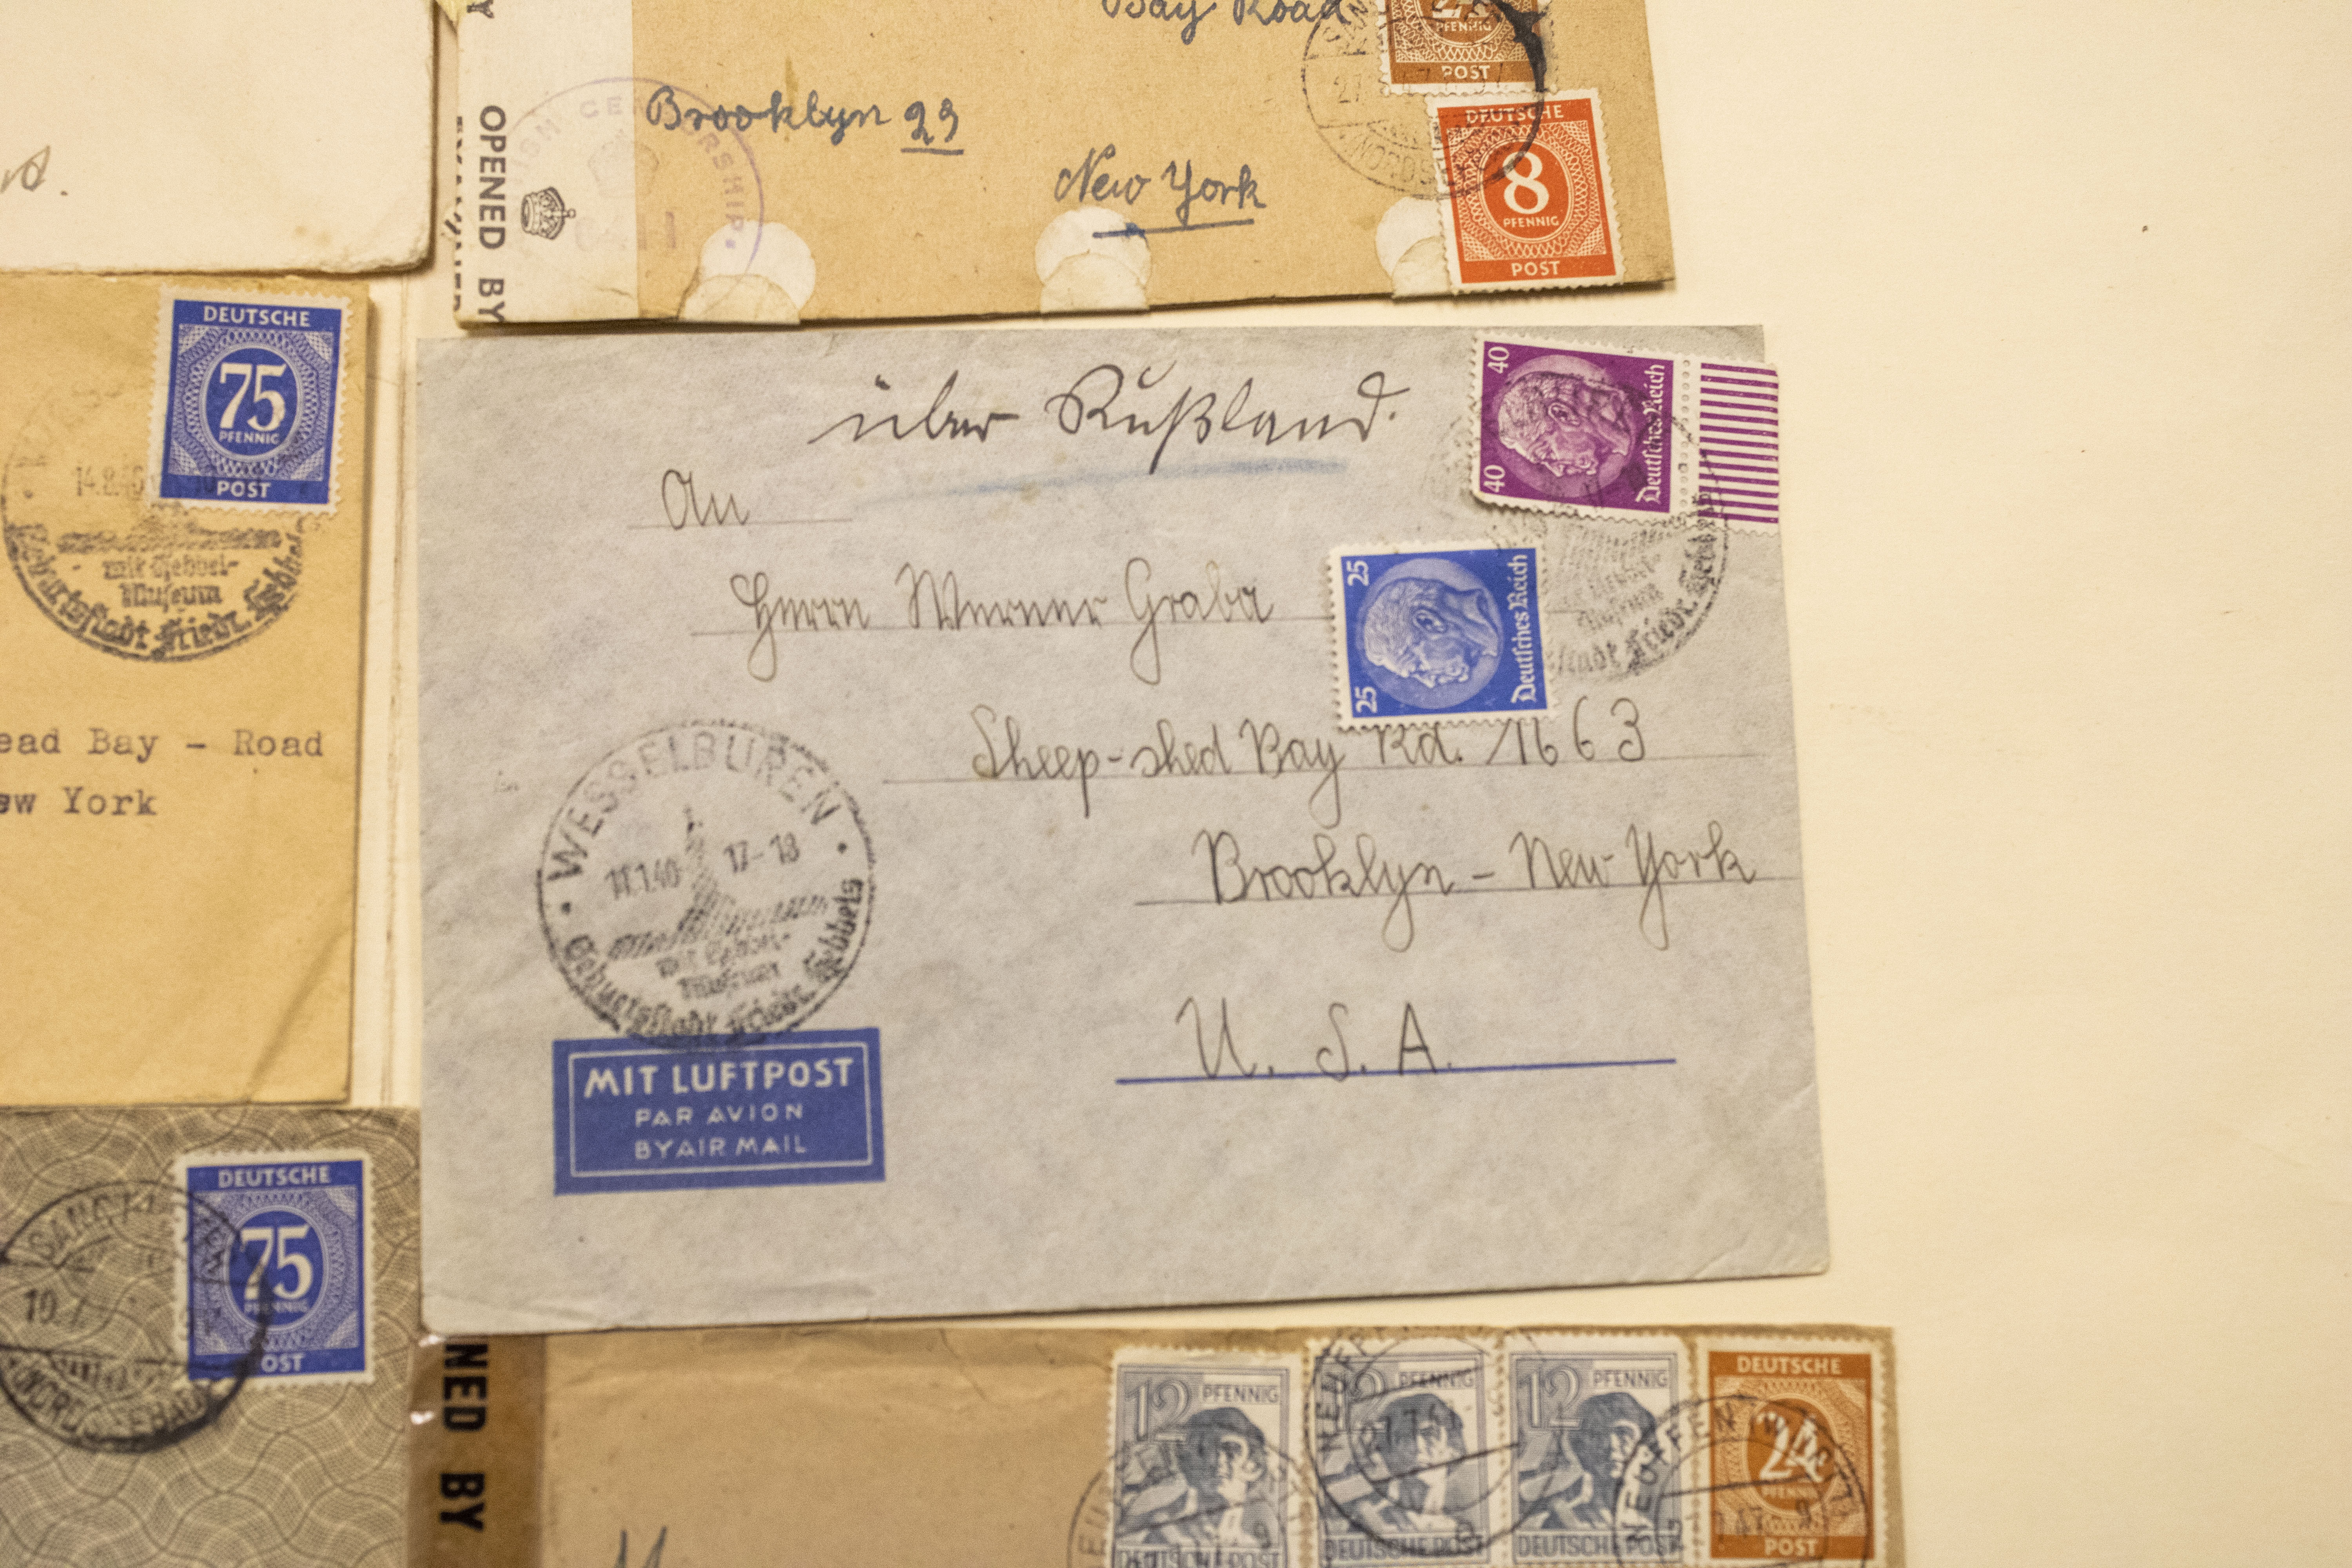 Bay Road
Brooklyn 29
New York
OPENED BY
CENSORSHIP
PFENNIG
POST
DEUTSCHE
8
PFENNIG
POST
NORDSEE
DEUTSCHE
75
PFENNIG
POST
14.8.46
mit Hebbel-
Museum
Geburtsstadt Friedr. Hebbels
ead Bay - Road
ew York
über Rußland.
An
Herrn Werner Graba
Sheep-shed Bay Rd. 1663
Brooklyn - New York
U. S. A.
40 40
Deutsches Reich
25 25
Deutsches Reich
Museum
stadt Friedr. Hebbels
WESSELBUREN
11.1.40 17-18
mit Hebbel-
Museum
Geburtsstadt Friedr. Hebbels
MIT LUFTPOST
PAR AVION
BY AIR MAIL
DEUTSCHE
75
PFENNIG
POST
SANKT
10.
NORDSEEBAD
NED BY
12 PFENNIG
DEUTSCHE POST
12 PFENNIG
DEUTSCHE POST
12 PFENNIG
DEUTSCHE POST
DEUTSCHE
24
PFENNIG
POST
NEUFFEN